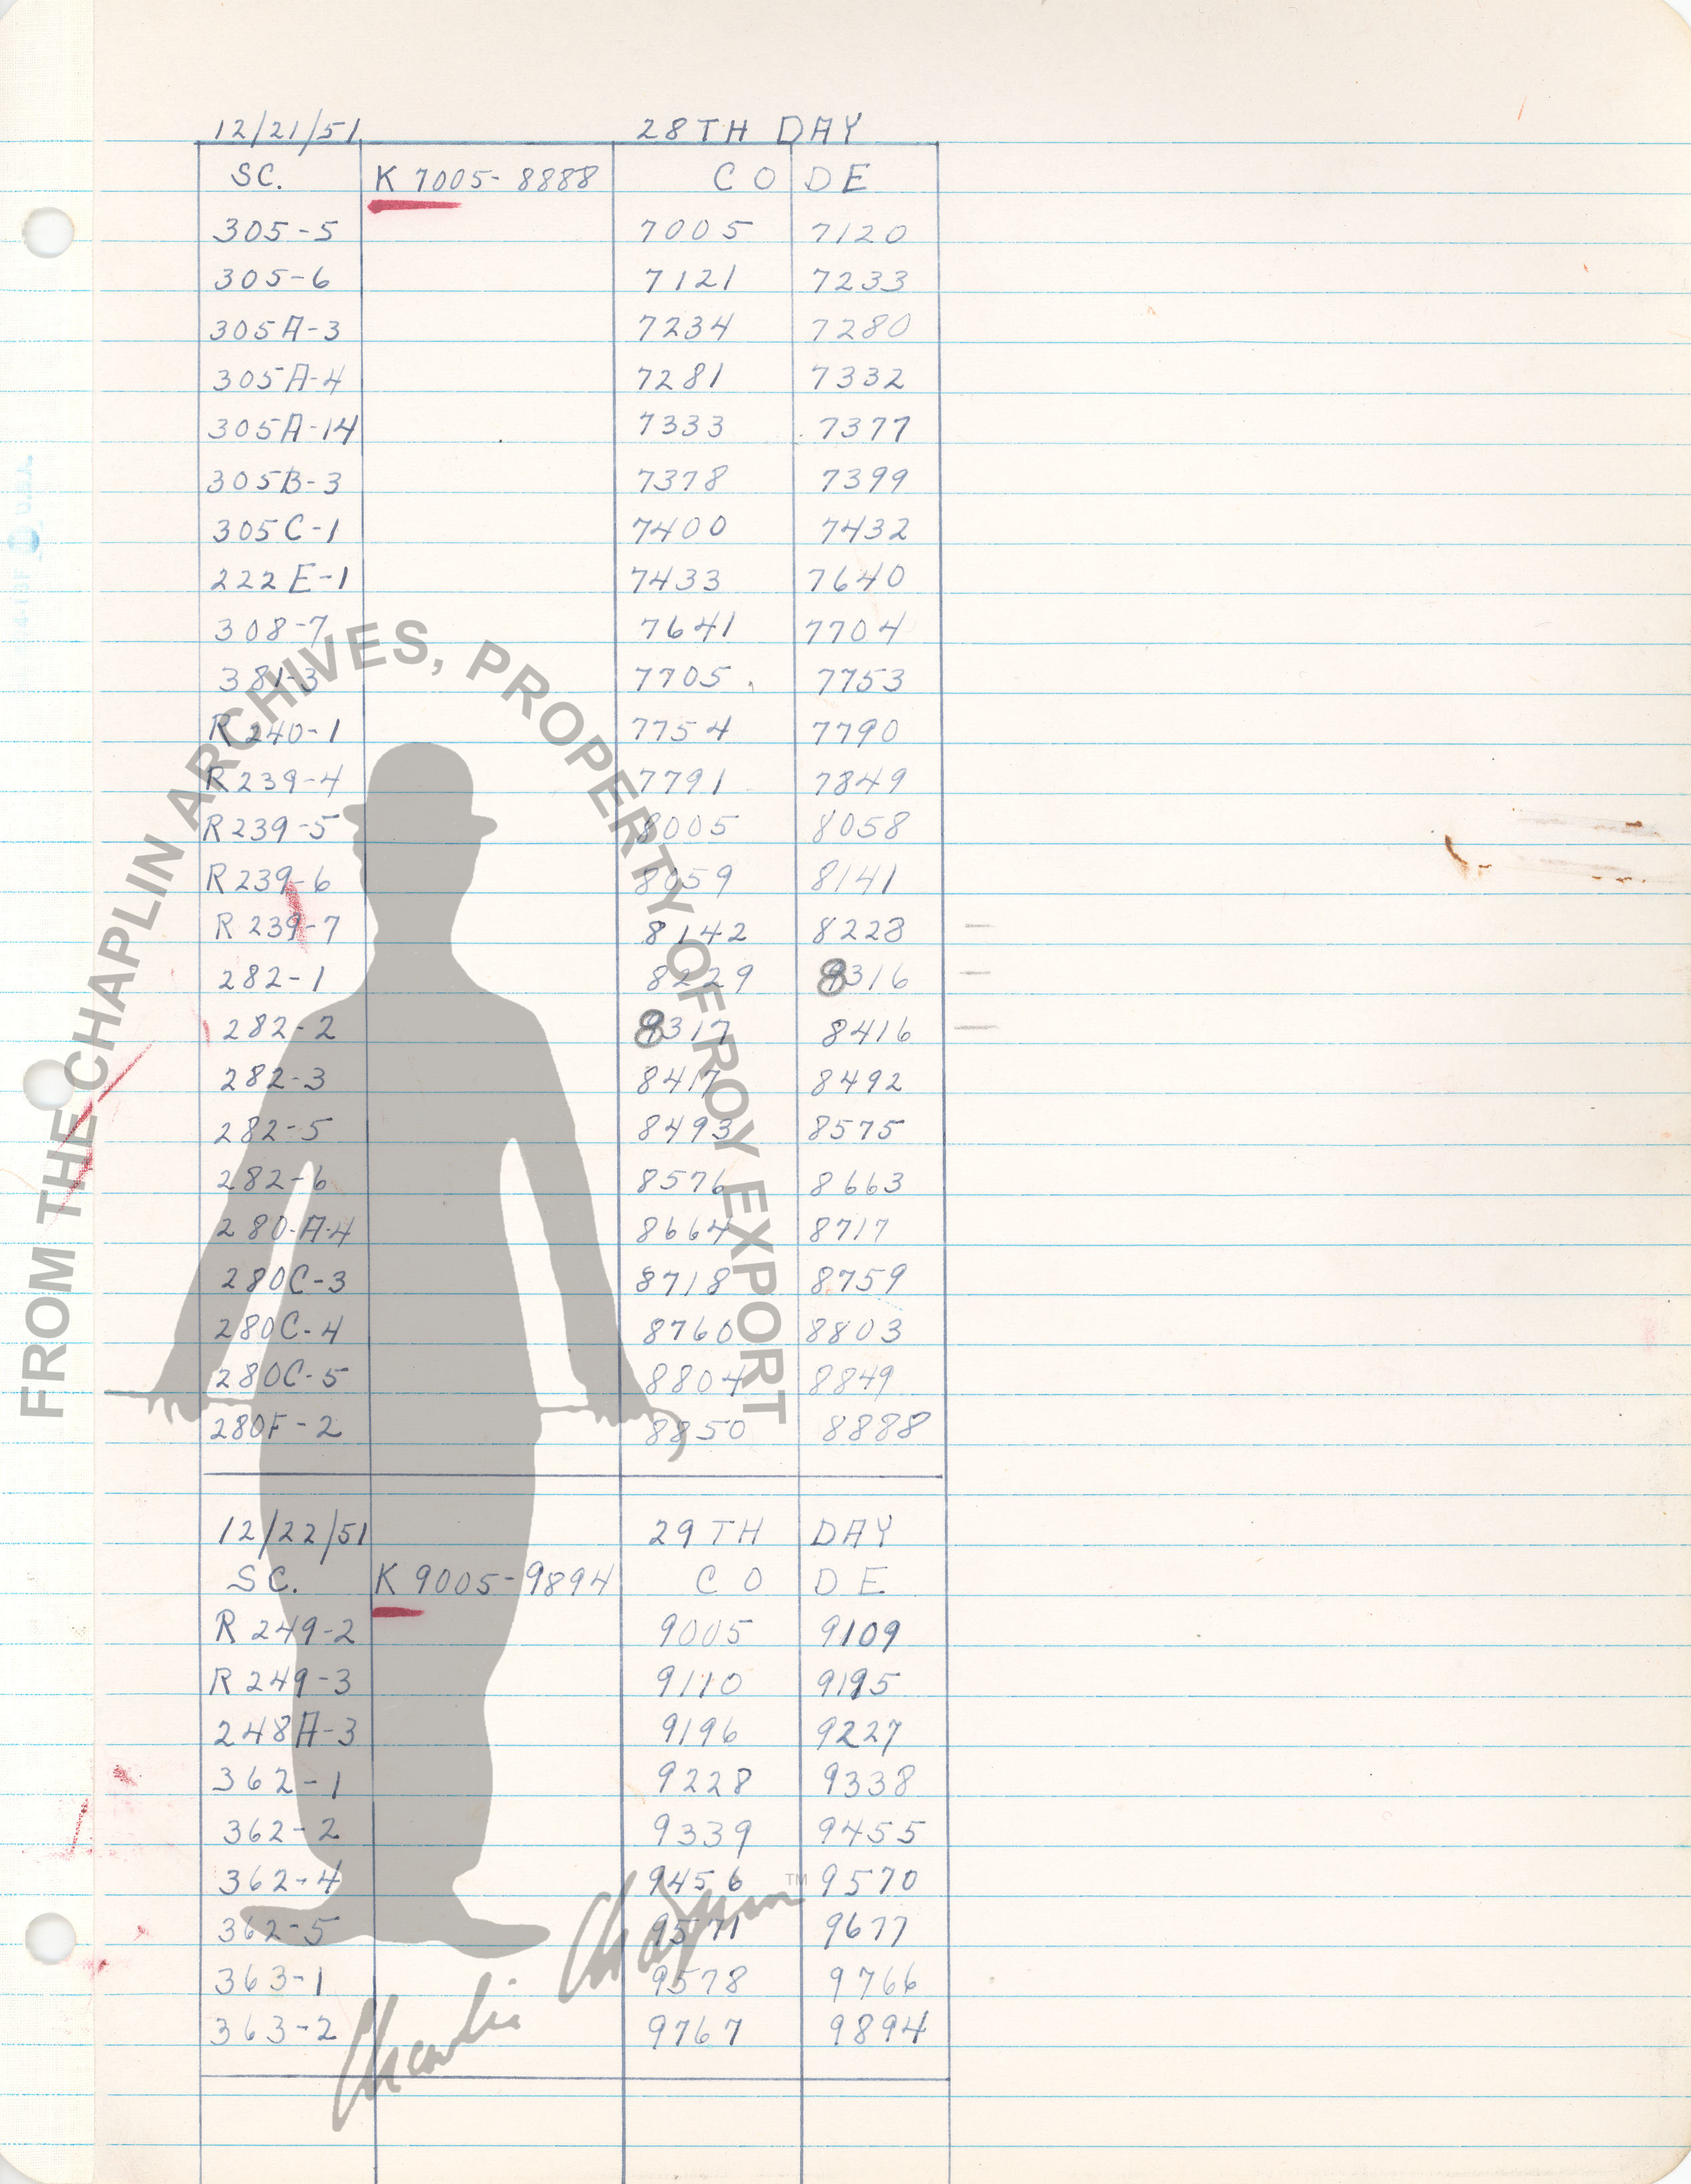 12/21/51 28TH DAY
SC. K 7005-8888 CODE
305-5 7005 7120
305-6 7121 7233
305A-3 7234 7280
305A-4 7281 7332
305A-14 7333 7377
305B-3 7378 7399
305C-1 7400 7432
222E-1 7433 7640
308-7 7641 7704
381-3 7705 7753
R 240-1 7754 7790
R 239-4 7791 7849
R 239-5 8005 8058
R 239-6 8059 8141
R 239-7 8142 8228
282-1 8229 8316
282-2 8317 8416
282-3 8417 8492
282-5 8493 8575
282-6 8576 8663
280-A-4 8664 8717
280C-3 8718 8759
280C-4 8760 8803
280C-5 8804 8849
280F-2 8850 8888
12/22/51 29TH DAY
SC. K 9005-9894 CODE
R 249-2 9005 9109
R 249-3 9110 9195
248A-3 9196 9227
362-1 9228 9338
362-2 9339 9455
362-4 9456 9570
362-5 9571 9677
363-1 9578 9766
363-2 9767 9894
FROM THE CHAPLIN ARCHIVES, PROPERTY OF ROY EXPORT
Charlie Chaplin™